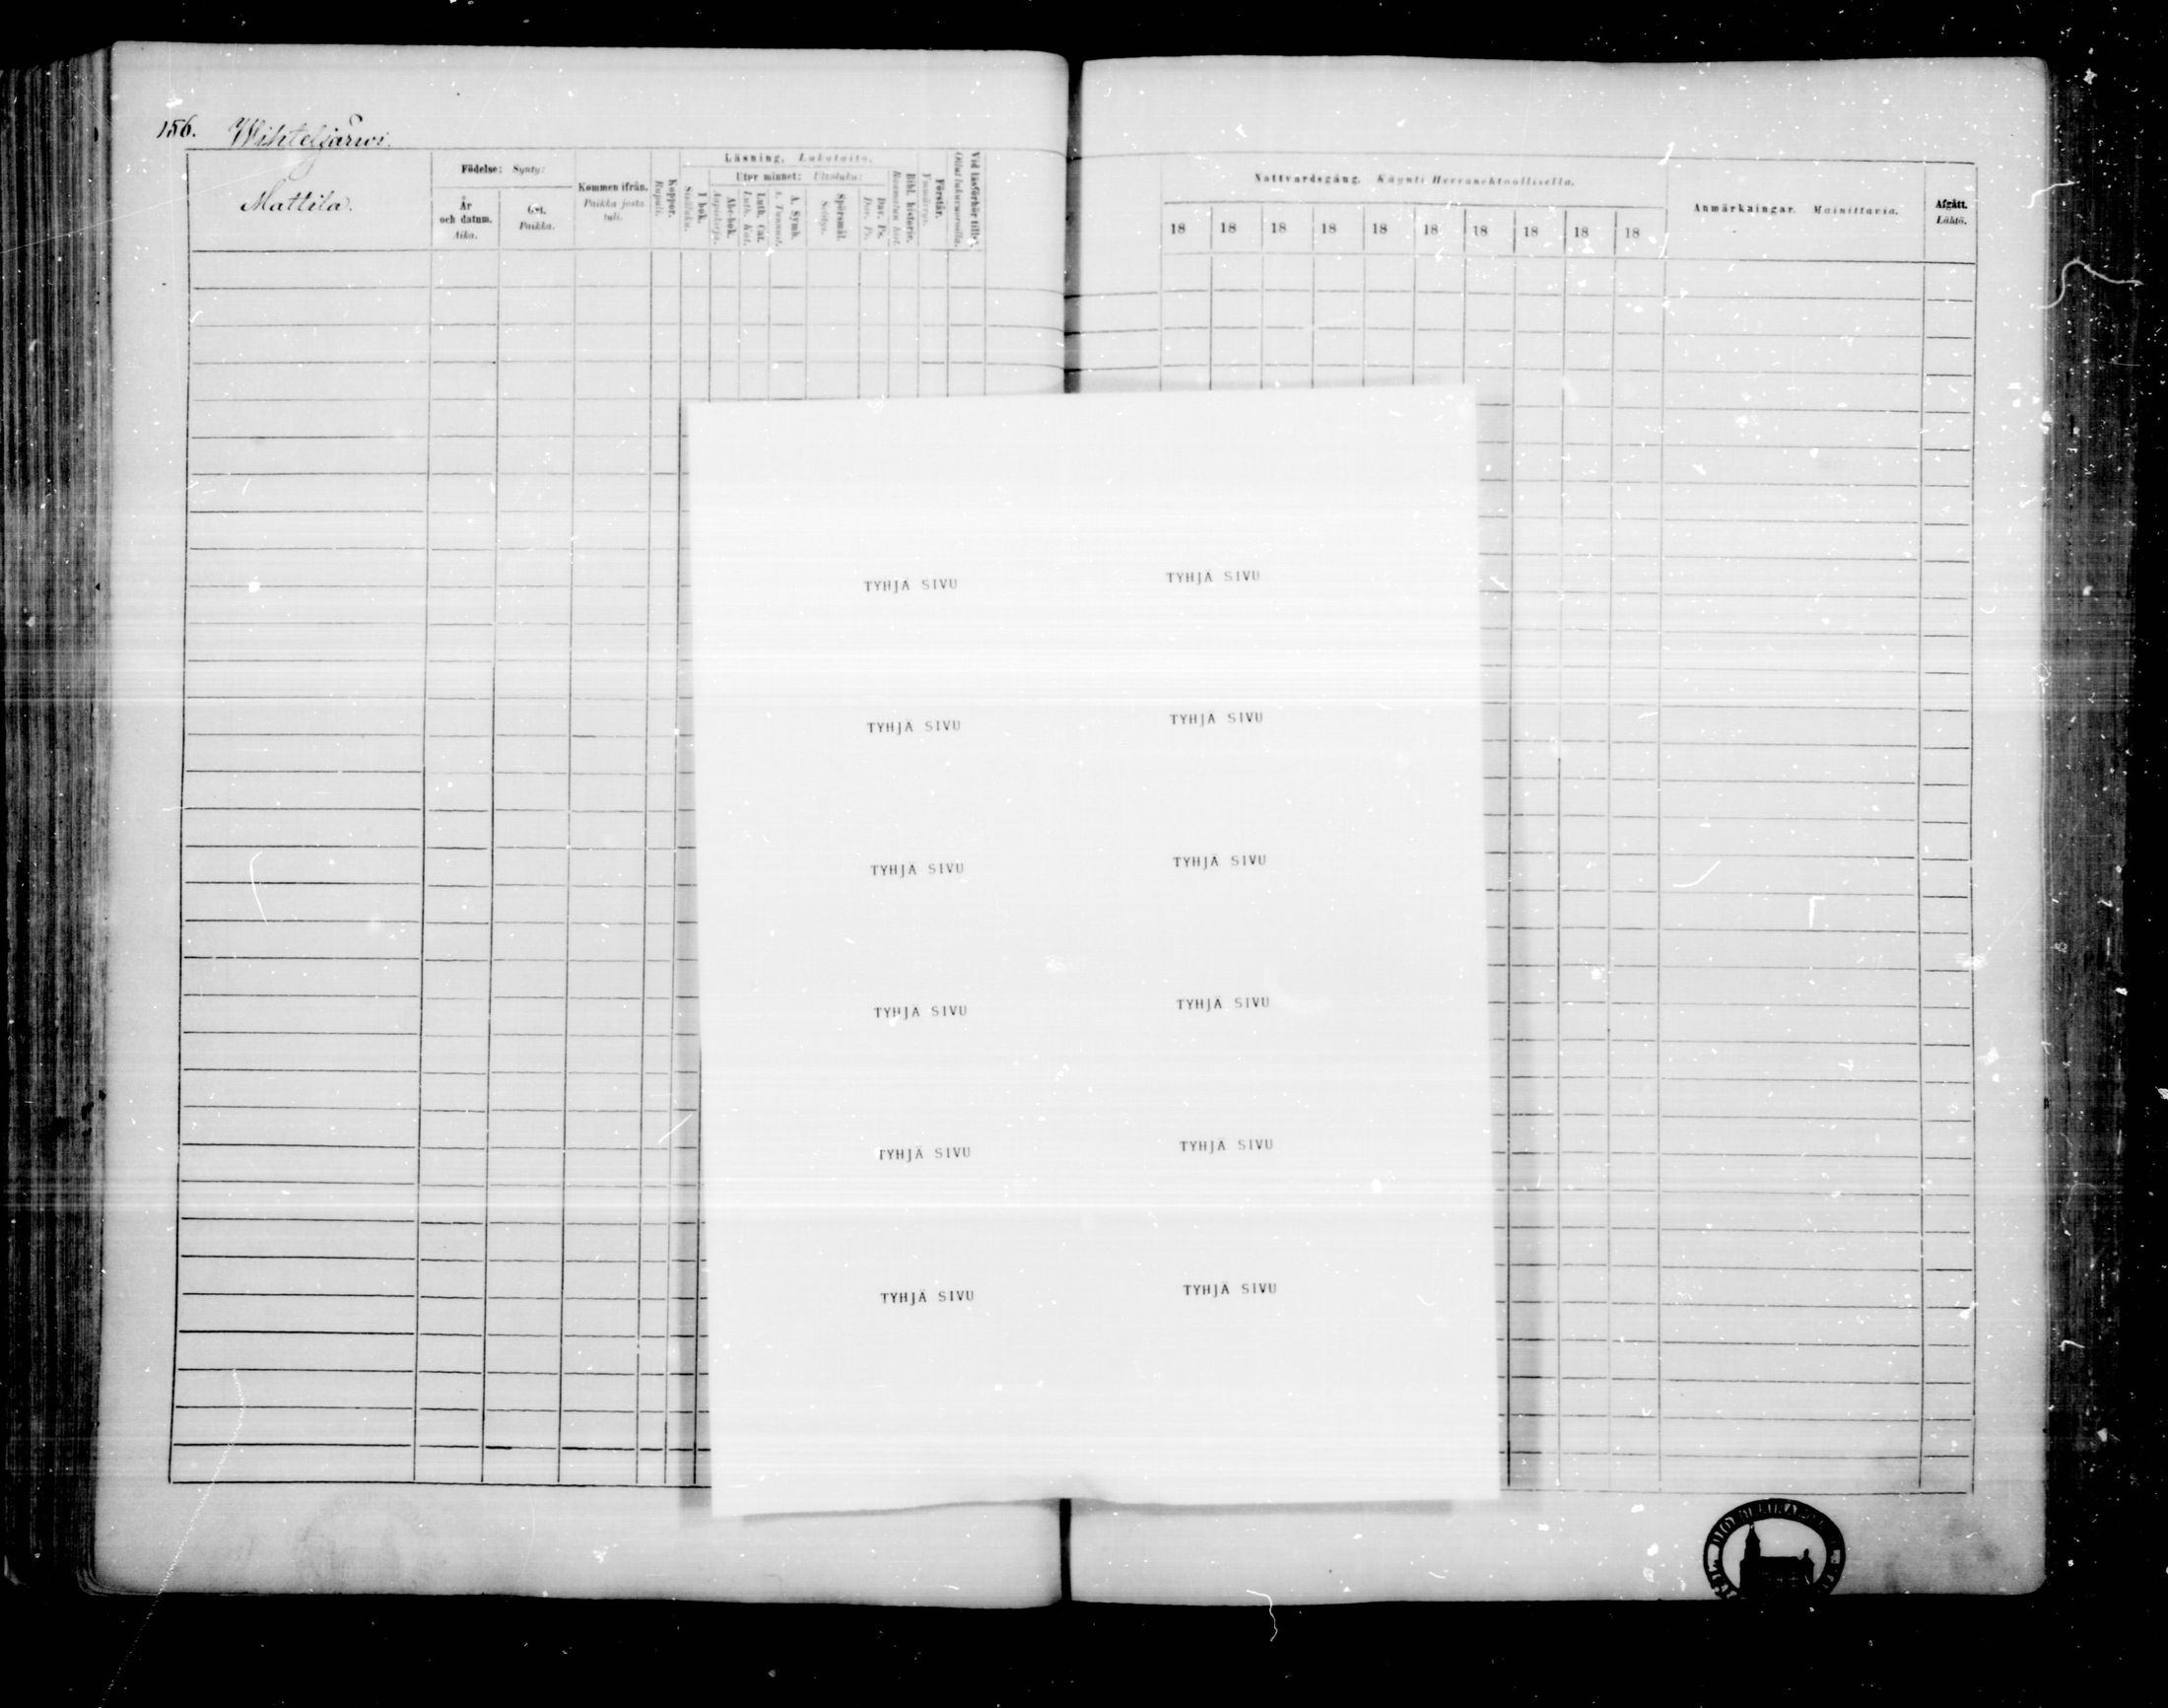 156. Wihteljärwi.
Mattila.
Födelse: Synty:
År och datum. Aika.
Ort. Paikka.
Kommen ifrån. Paikka josta tuli.
Koppor. Rupuli.
Läsning. Lukutaito.
I bok. Sisäluku.
Uter minnet: Ulkoluku:
Abc-bok. Aapiskirja.
Luth. Cat. Luth. Kat.
A. Symb. A. Tunnust.
Spörsmål.
Dav. Ps. Dav. Ps.
Bibl. historie.
Förstår.
Vid läsförhör
Nattvardsgång. Käynti Herranehtoollisella.
18 18 18 18 18 18 18 18 18 18
Anmärkningar. Mainittavia.
Afgått. Lähtö.
TYHJÄ SIVU TYHJÄ SIVU
TYHJÄ SIVU TYHJÄ SIVU
TYHJÄ SIVU TYHJÄ SIVU
TYHJÄ SIVU TYHJÄ SIVU
TYHJÄ SIVU TYHJÄ SIVU
TYHJÄ SIVU TYHJÄ SIVU